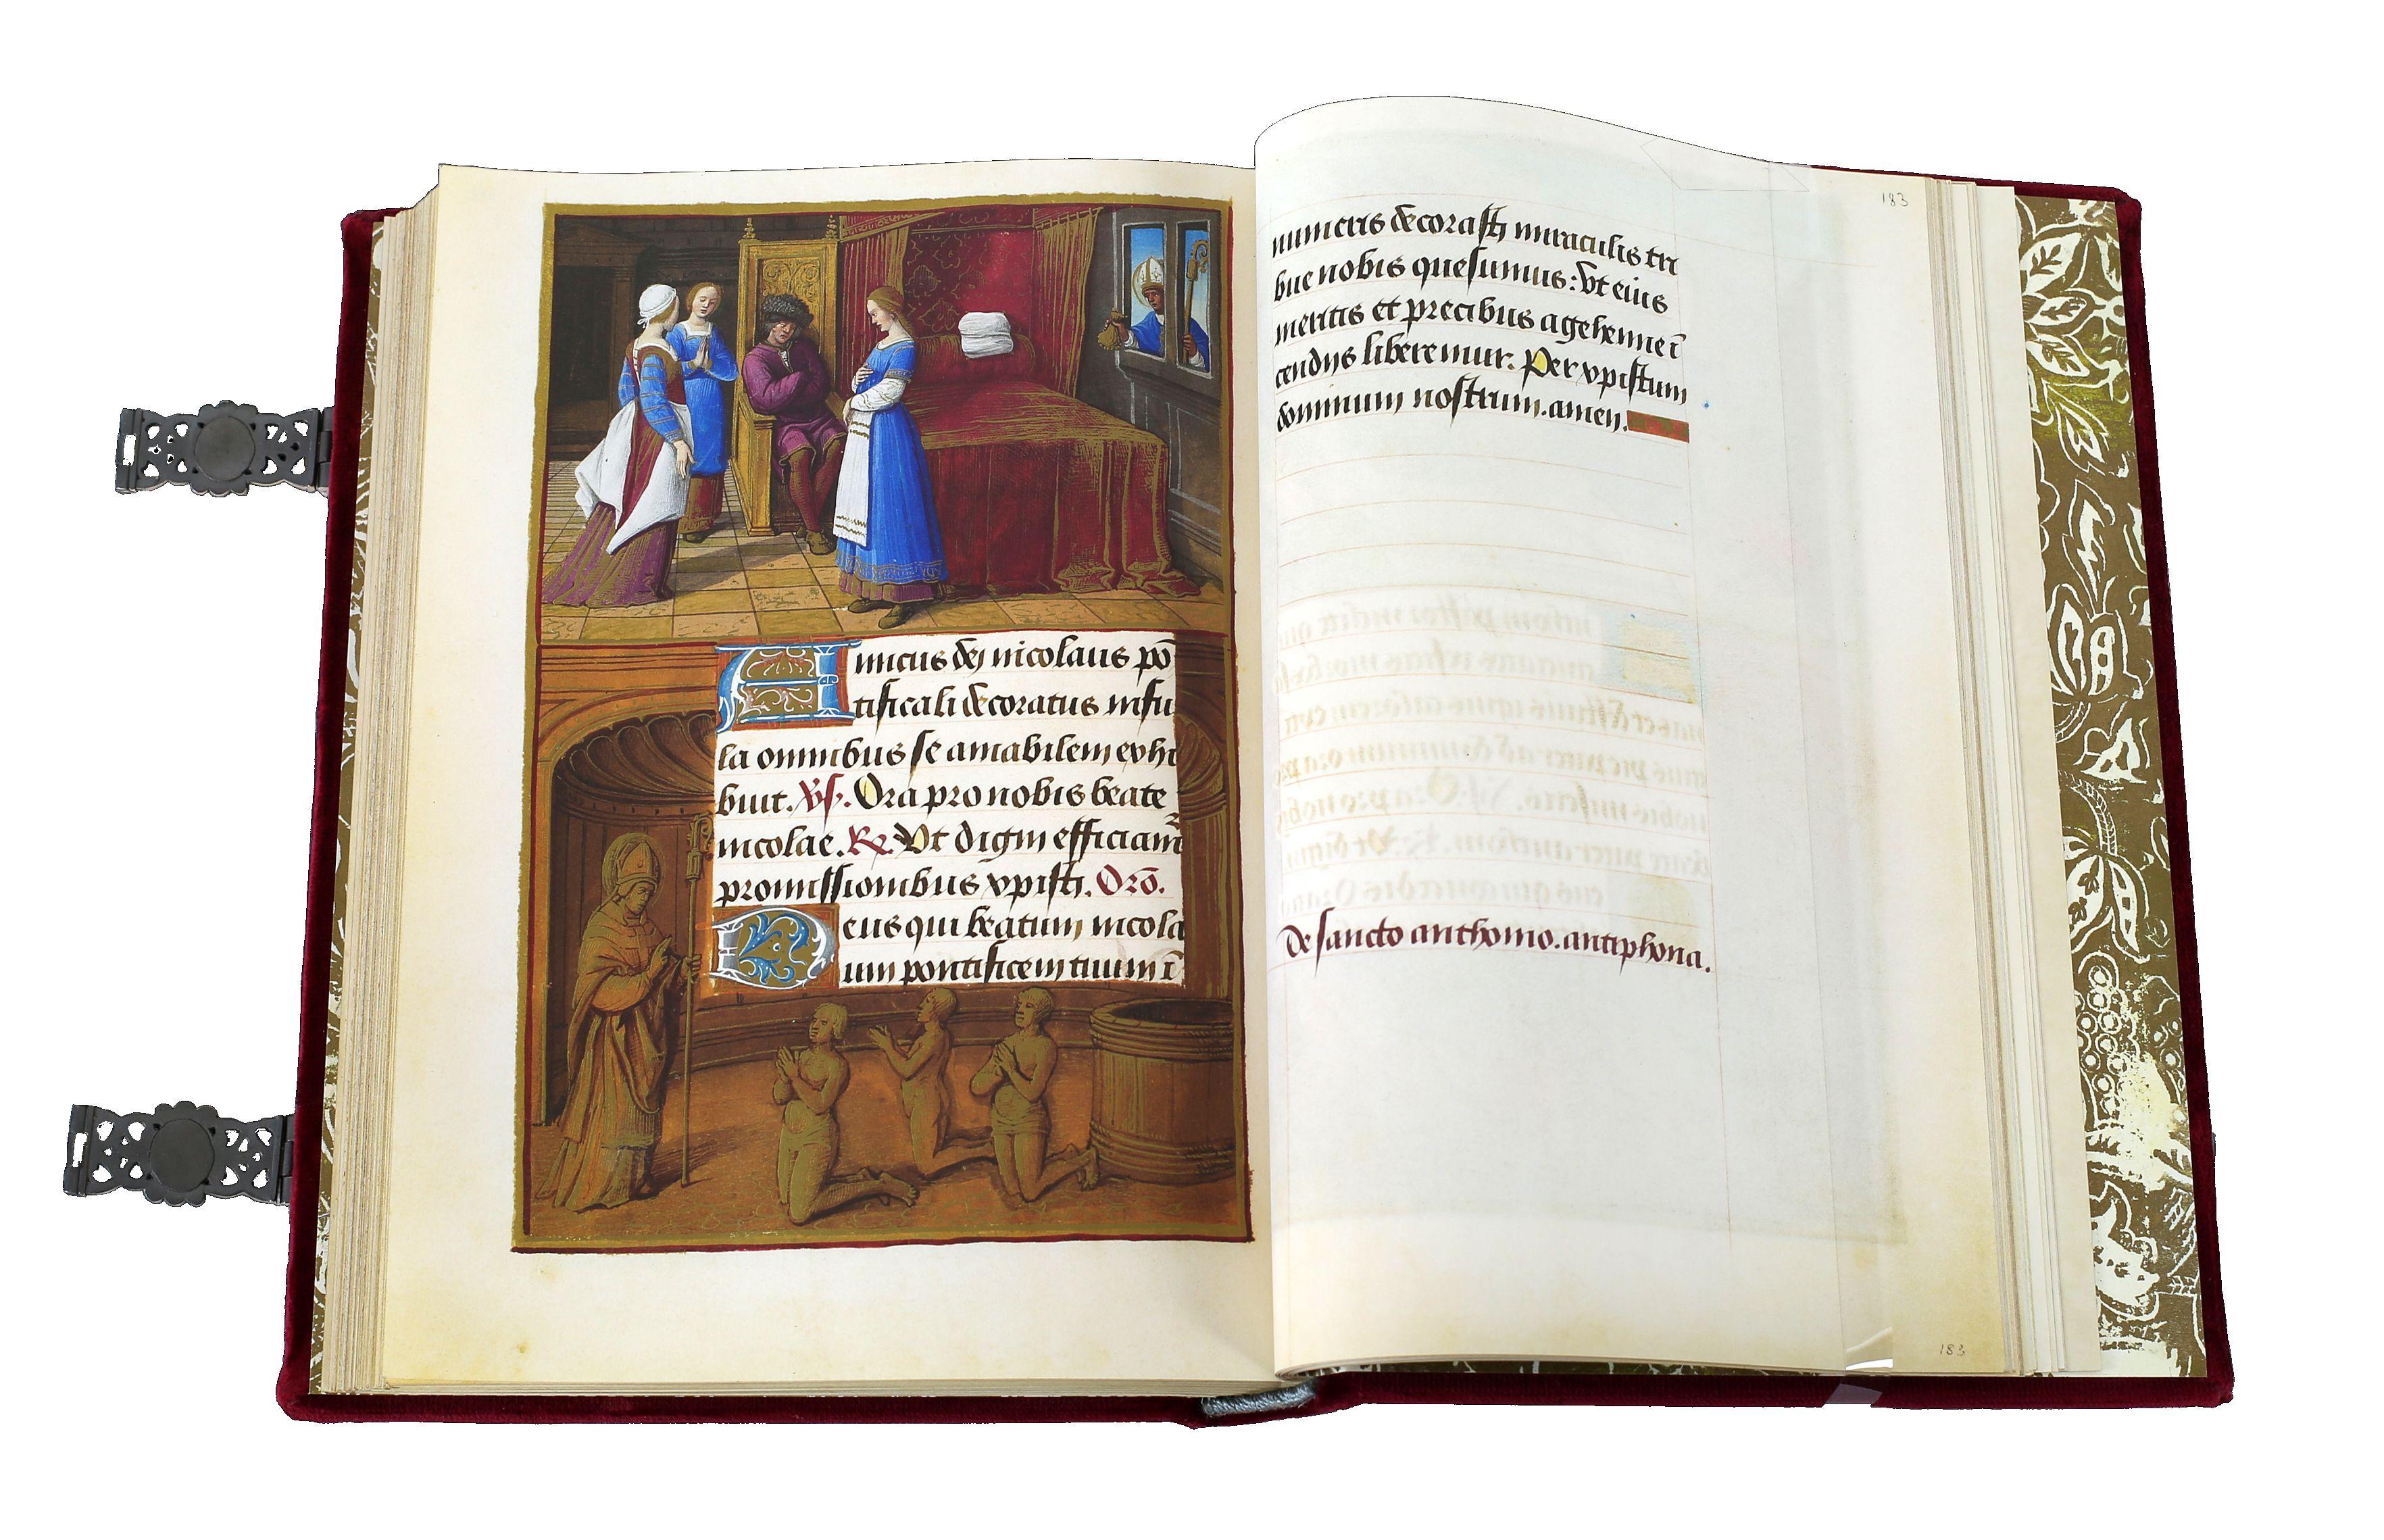 Amicus dei nicolaus pō
tificali decoratus infu
la omnibus se amabilem exhi
buit. Vs. Ora pro nobis beate
nicolae. R. Vt digni efficiam̄
promissionibus xpisti. Orō.
Deus qui beatum nicola
um pontificem tuum ī
183
numeris decorasti miraculis tri
bue nobis quesumus: vt eius
meritis et precibus a gehenne ī
cendijs liberemur. Per xpistum
dominum nostrum. amen.
De sancto anthonio. antiphona.
183